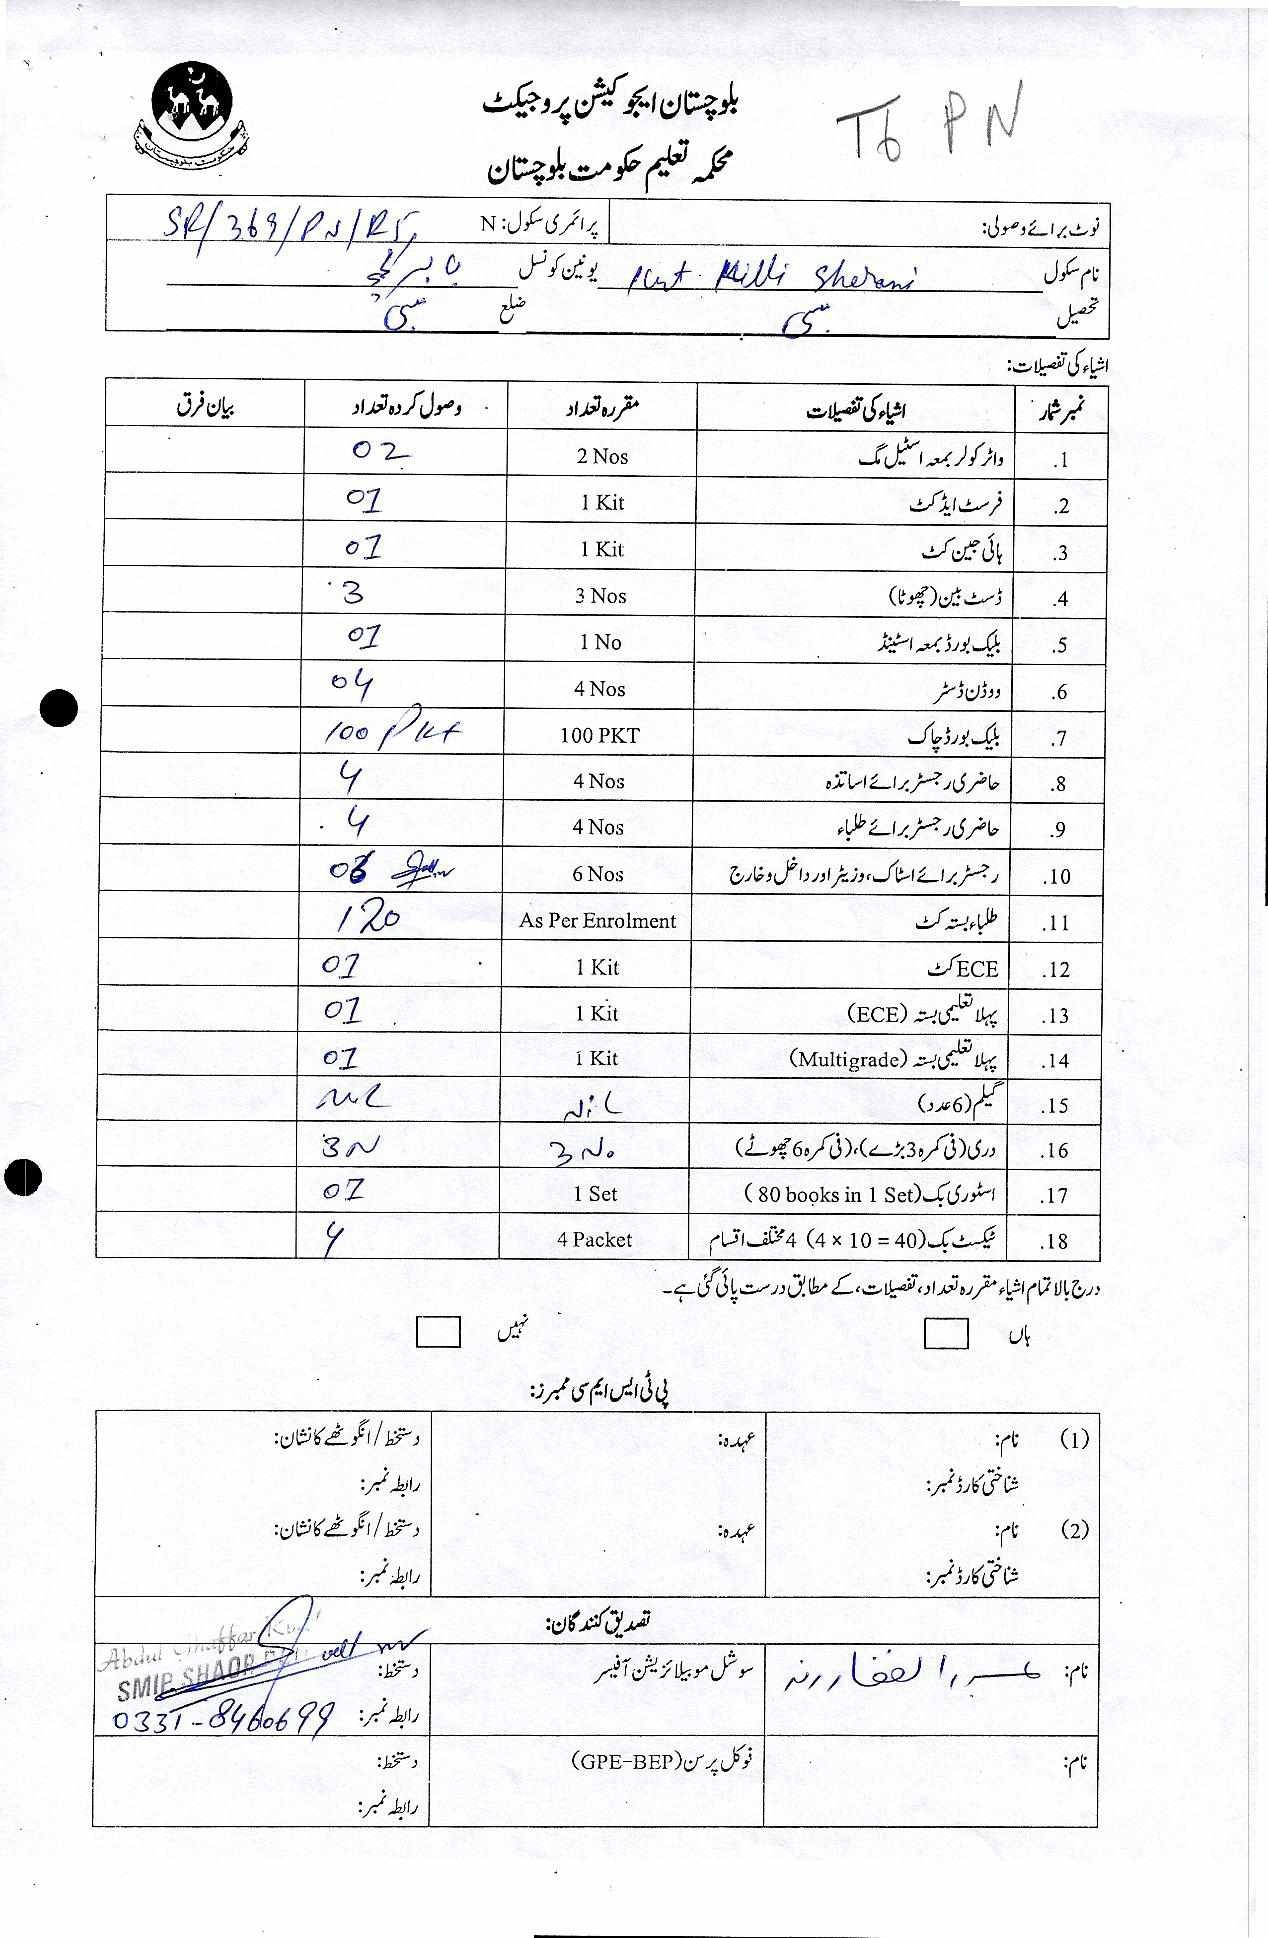 بلوچستان ایجوکیشن پروجیکٹ
T6 PN
محکمہ تعلیم حکومت بلوچستان
نوٹ برائے وصولی: پرائمری سکول: N SR/369/PN/R5
نام سکول Killi Sherani یونین کونسل
تحصیل سبی ضلع سبی
اشیاء کی تفصیلات:
نمبر شمار اشیاء کی تفصیلات مقررہ تعداد وصول کردہ تعداد بیان فرق
1. واٹر کولر بمعہ اسٹیل مگ 2 Nos 02
2. فرسٹ ایڈ کٹ 1 Kit 01
3. ہائی جین کٹ 1 Kit 01
4. ڈسٹ بین (چھوٹا) 3 Nos 3
5. بلیک بورڈ بمعہ اسٹینڈ 1 No 01
6. ووڈن ڈسٹر 4 Nos 04
7. بلیک بورڈ چاک 100 PKT 100 Pkt
8. حاضری رجسٹر برائے اساتذہ 4 Nos 4
9. حاضری رجسٹر برائے طلباء 4 Nos 4
10. رجسٹر برائے اسٹاک، وزیٹر اور داخل و خارج 6 Nos 06
11. طلباء بستہ کٹ As Per Enrolment 120
12. ECE کٹ 1 Kit 01
13. پہلا تعلیمی بستہ (ECE) 1 Kit 01
14. پہلا تعلیمی بستہ (Multigrade) 1 Kit 01
15. گیلم (6 عدد) Nil Nil
16. دری (فی کمرہ 3 بڑے)، (فی کمرہ 6 چھوٹے) 3 No 3 N
17. اسٹوری بک (80 books in 1 Set) 1 Set 01
18. ٹیکسٹ بک (4 × 10 = 40) 4 مختلف اقسام 4 Packet 4
درج بالا تمام اشیاء مقررہ تعداد، تفصیلات، کے مطابق درست پائی گئی ہے۔
ہاں نہیں
پی ٹی ایس ایم سی ممبرز:
(1) نام: عہدہ: دستخط/انگوٹھے کا نشان:
شناختی کارڈ نمبر: رابطہ نمبر:
(2) نام: عہدہ: دستخط/انگوٹھے کا نشان:
شناختی کارڈ نمبر: رابطہ نمبر:
تصدیق کنندگان:
Abdul Ghaffar
نام: عبدالغفار رند سوشل موبیلائزیشن آفیسر دستخط: SMIP SHAOR
رابطہ نمبر: 0331-8460699
نام: فوکل پرسن (GPE-BEP) دستخط:
رابطہ نمبر: